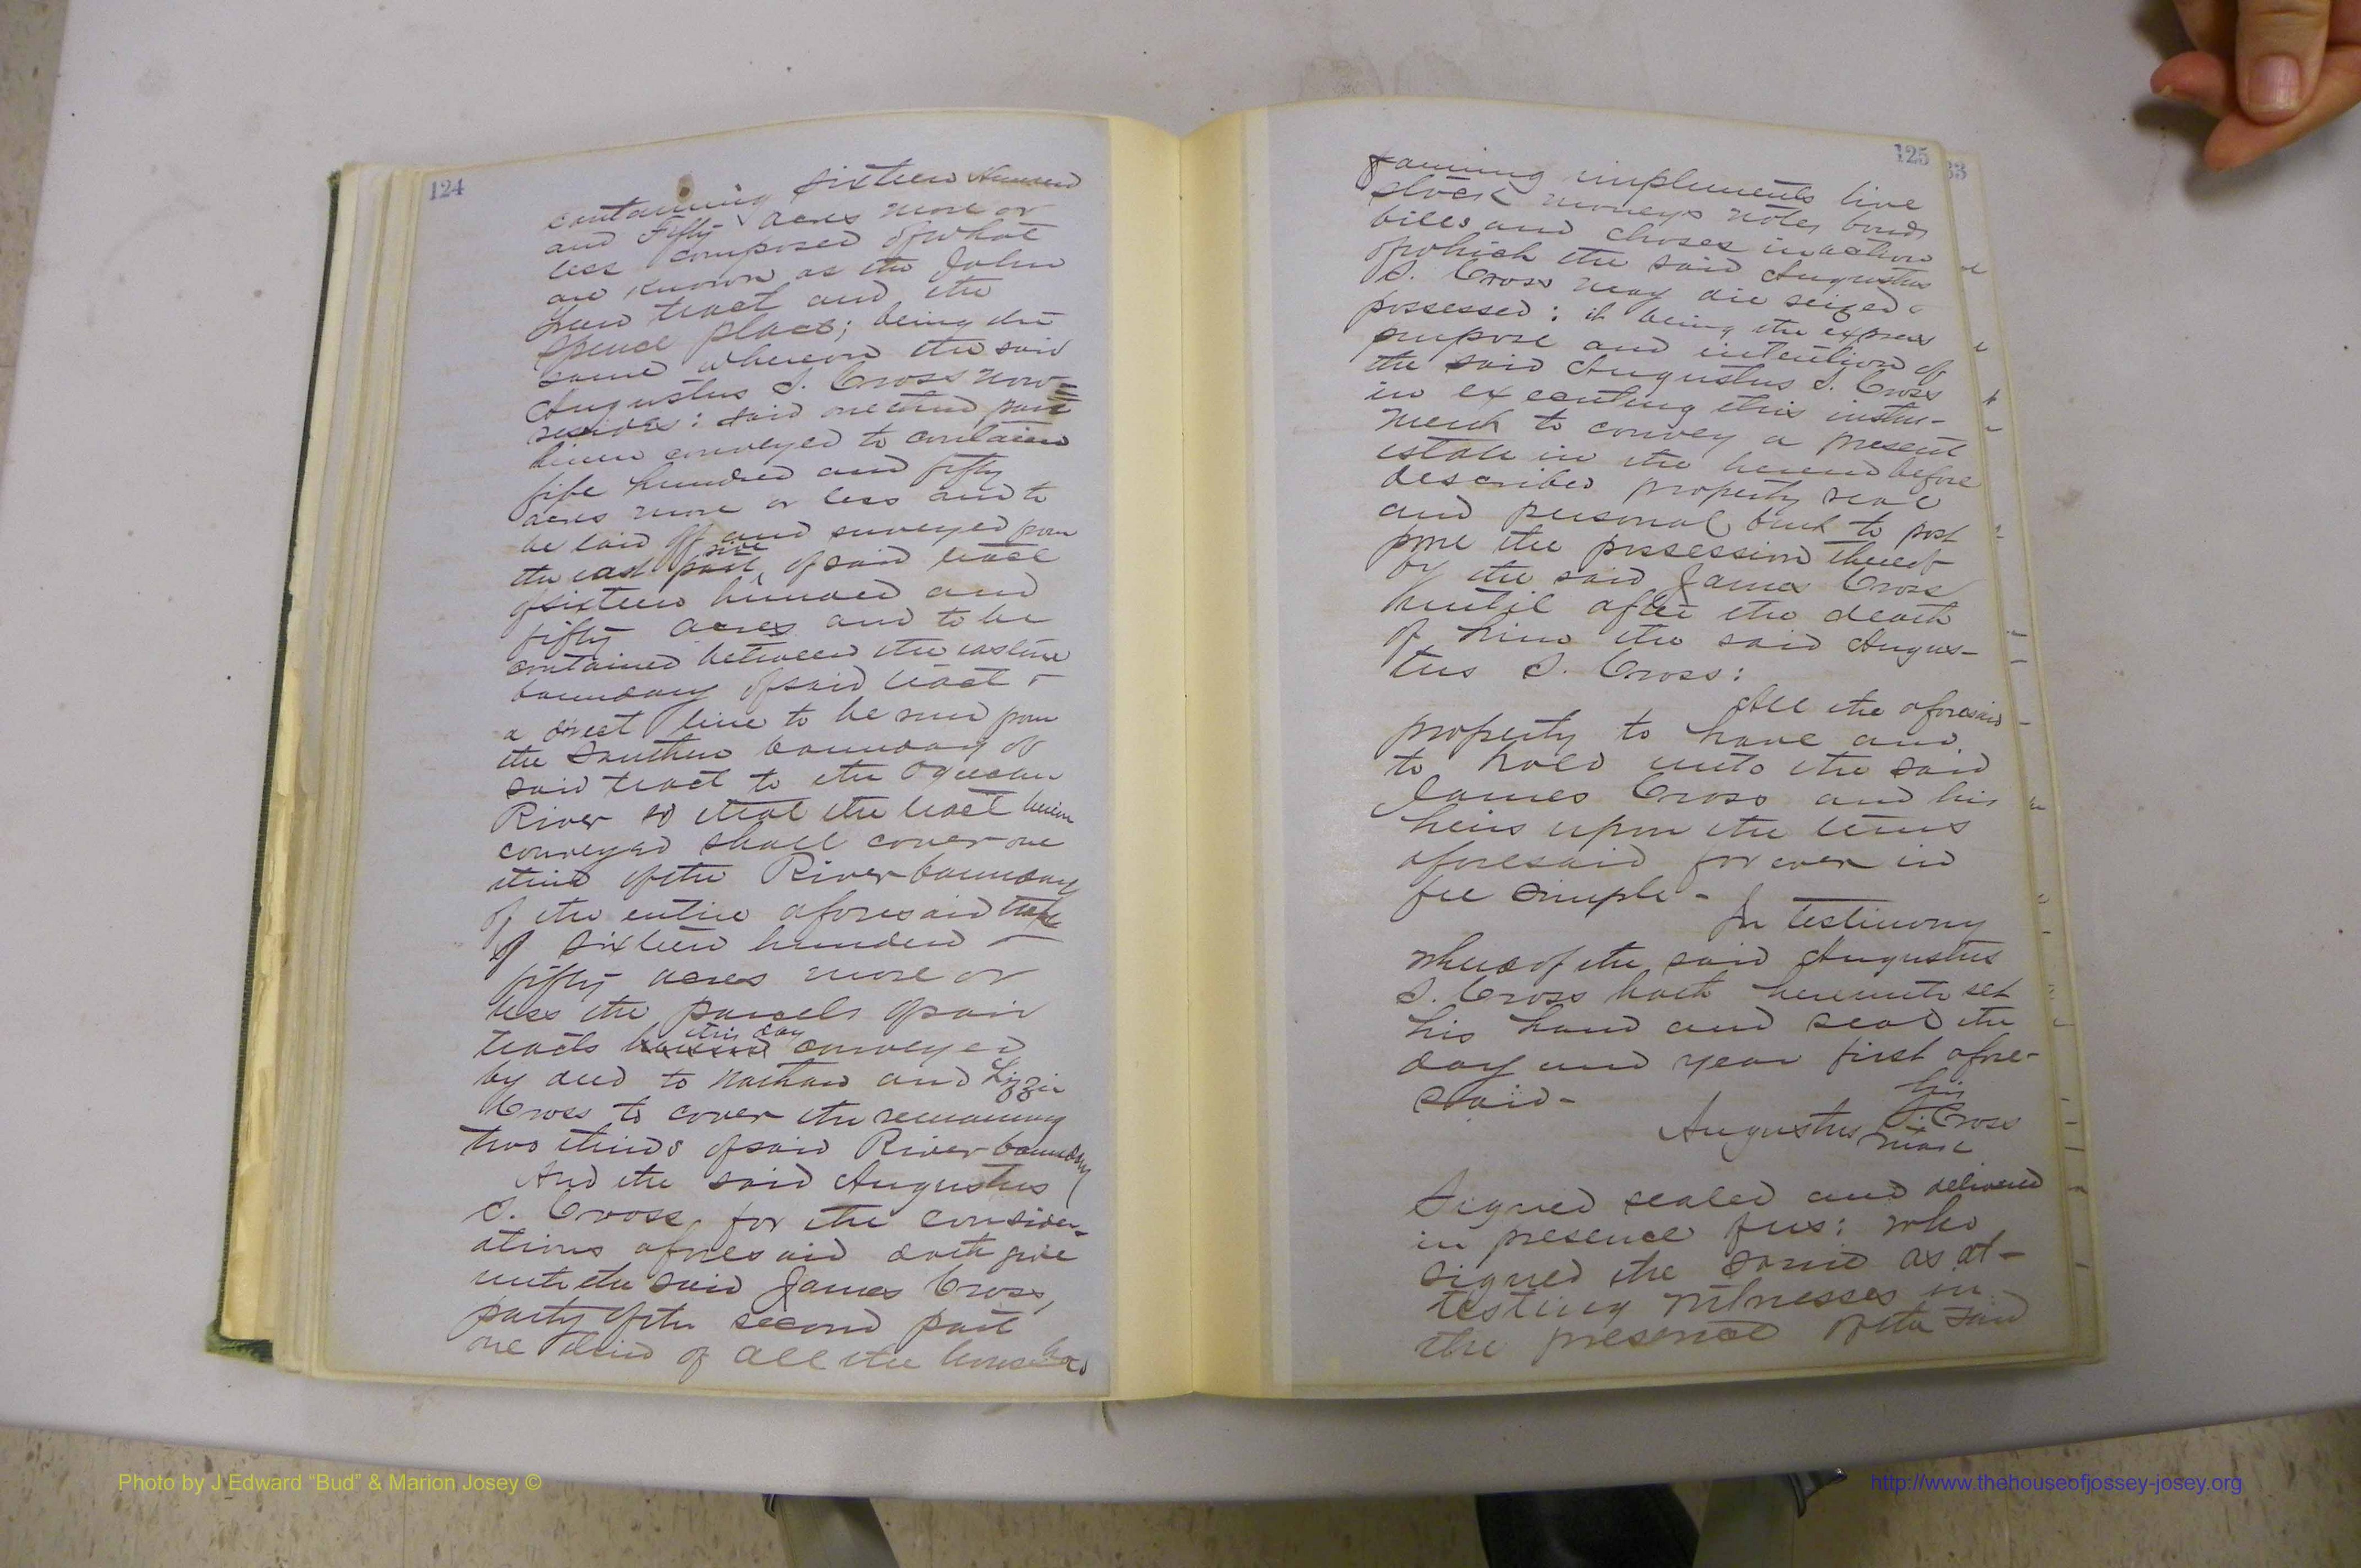 124
sixteen Hundred
containing
and Fifty acres more or
less composed of what
are known as the John
tract and the
Spence place; being the
same whereon the said
Augustus S. Cross now
resides: said one third part
herein conveyed to contain
fife hundred and fifty
acres more or less and to
be laid off and surveyed from
side
the east part of said tract
of sixteen hundred and
fifty acres and to be
contained between the eastern
boundary of said tract &
a direct line to be run from
the Southern boundary of
said tract to the Ogeechee
River so that the tract herein
conveyed shall cover one
third of the River boundary
of the entire aforesaid
of sixteen hundred &
fifty acres more or
less the parcels of said
this day
tracts conveyed
by deed to Nathan and Lizzie
Cross to cover the remaining
two thirds of said River boundary
And the said Augustus
S. Cross, for the consider-
ations aforesaid doth give
unto the said James Cross,
party of the second part
one third of all the household
125
33
farming implements live
stock moneys notes bonds
bills and choses in action
of which the said Augustus
S. Cross may die seized &
possessed: it being the express
purpose and intention of
the said Augustus S. Cross
in executing this instru-
ment to convey a present
estate in the hereinbefore
described property real
and personal but to post
pone the possession thereof
by the said James Cross
until after the death
of him the said Augus-
tus S. Cross:
All the aforesaid
property to have and
to hold unto the said
James Cross and his
heirs upon the terms
aforesaid forever in
fee simple -
In testimony
whereof the said Augustus
S. Cross hath hereunto set
his hand and seal the
day and year first afore-
said -
his
Augustus S. Cross
mark
Signed sealed and delivered
in presence of us: who
signed the same as at-
testing witnesses in
the presence of the said
Photo by J Edward “Bud” & Marion Josey ©
http://www.thehouseofjossey-josey.org